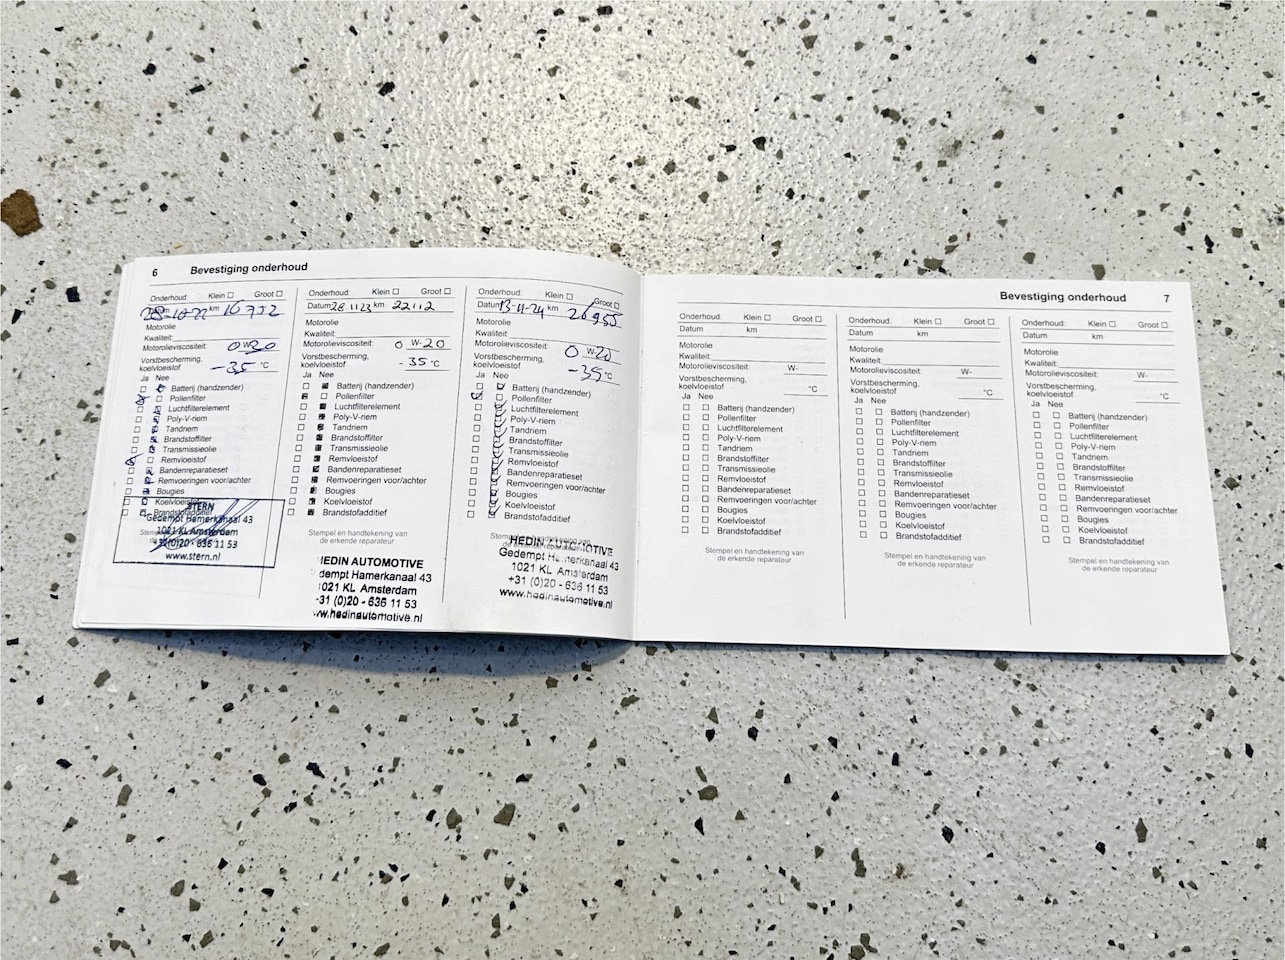 6 Bevestiging onderhoud
Onderhoud: Klein Groot
km 16 752
Motorolie
Kwaliteit:
Motorolieviscositeit: 0 W-20
Vorstbescherming,
koelvloeistof -35 °C
Ja Nee
Batterij (handzender)
Pollenfilter
Luchtfilterelement
Poly-V-riem
Tandriem
Brandstoffilter
Transmissieolie
Remvloeistof
Bandenreparatieset
Remvoeringen voor/achter
Bougies
Koelvloeistof
Brandstofadditief
STERN
Gedempt Hamerkanaal 43
1021 KL Amsterdam
+31(0)20 - 636 11 53
www.stern.nl
Onderhoud: Klein Groot
Datum 28 11 23 km 22112
Motorolie
Kwaliteit:
Motorolieviscositeit: 0 W-20
Vorstbescherming,
koelvloeistof -35 °C
Ja Nee
Batterij (handzender)
Pollenfilter
Luchtfilterelement
Poly-V-riem
Tandriem
Brandstoffilter
Transmissieolie
Remvloeistof
Bandenreparatieset
Remvoeringen voor/achter
Bougies
Koelvloeistof
Brandstofadditief
Stempel en handtekening van
de erkende reparateur
HEDIN AUTOMOTIVE
dempt Hamerkanaal 43
1021 KL Amsterdam
+31 (0)20 - 636 11 53
www.hedinautomotive.nl
Onderhoud: Klein Groot
Datum 13-11-24 km 26955
Motorolie
Kwaliteit:
Motorolieviscositeit: 0 W-20
Vorstbescherming,
koelvloeistof -35 °C
Ja Nee
Batterij (handzender)
Pollenfilter
Luchtfilterelement
Poly-V-riem
Tandriem
Brandstoffilter
Transmissieolie
Remvloeistof
Bandenreparatieset
Remvoeringen voor/achter
Bougies
Koelvloeistof
Brandstofadditief
HEDIN AUTOMOTIVE
Gedempt Hamerkanaal 43
1021 KL Amsterdam
+31 (0)20 - 636 11 53
www.hedinautomotive.nl
Bevestiging onderhoud 7
Onderhoud: Klein Groot
Datum km
Motorolie
Kwaliteit:
Motorolieviscositeit: W-
Vorstbescherming,
koelvloeistof °C
Ja Nee
Batterij (handzender)
Pollenfilter
Luchtfilterelement
Poly-V-riem
Tandriem
Brandstoffilter
Transmissieolie
Remvloeistof
Bandenreparatieset
Remvoeringen voor/achter
Bougies
Koelvloeistof
Brandstofadditief
Stempel en handtekening van
de erkende reparateur
Onderhoud: Klein Groot
Datum km
Motorolie
Kwaliteit:
Motorolieviscositeit: W-
Vorstbescherming,
koelvloeistof °C
Ja Nee
Batterij (handzender)
Pollenfilter
Luchtfilterelement
Poly-V-riem
Tandriem
Brandstoffilter
Transmissieolie
Remvloeistof
Bandenreparatieset
Remvoeringen voor/achter
Bougies
Koelvloeistof
Brandstofadditief
Stempel en handtekening van
de erkende reparateur
Onderhoud: Klein Groot
Datum km
Motorolie
Kwaliteit:
Motorolieviscositeit: W-
Vorstbescherming,
koelvloeistof °C
Ja Nee
Batterij (handzender)
Pollenfilter
Luchtfilterelement
Poly-V-riem
Tandriem
Brandstoffilter
Transmissieolie
Remvloeistof
Bandenreparatieset
Remvoeringen voor/achter
Bougies
Koelvloeistof
Brandstofadditief
Stempel en handtekening van
de erkende reparateur